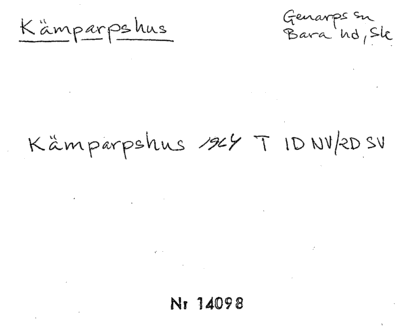 Kämparpshus
Genarps sn
Bara hd, Sk
Kämparpshus 1964 T 1D NV/2D SV
Nr 14098